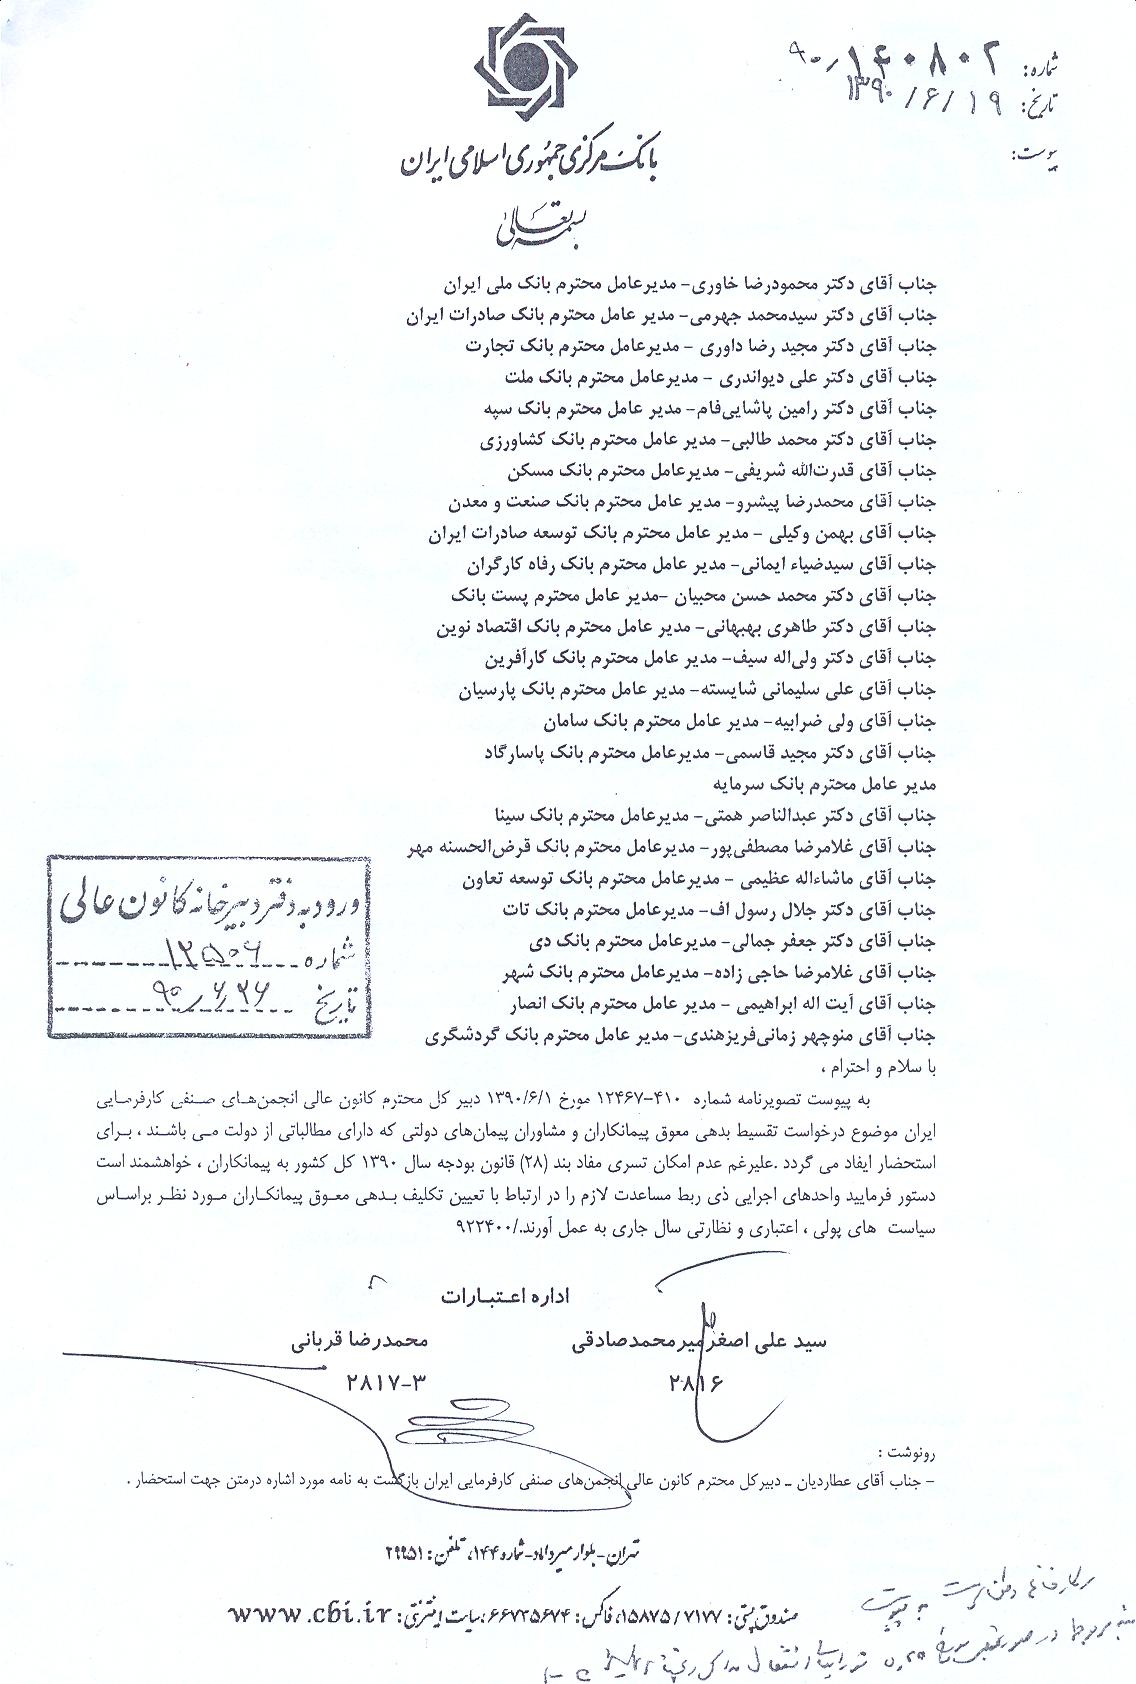 شماره: ۹۰/۱۴۰۸۰۲
تاریخ: ۱۳۹۰/۶/۱۹
پیوست:
بانک مرکزی جمهوری اسلامی ایران
بسمه تعالی
جناب آقای دکتر محمودرضا خاوری- مدیرعامل محترم بانک ملی ایران
جناب آقای دکتر سیدمحمد جهرمی- مدیر عامل محترم بانک صادرات ایران
جناب آقای دکتر مجید رضا داوری - مدیرعامل محترم بانک تجارت
جناب آقای دکتر علی دیواندری - مدیرعامل محترم بانک ملت
جناب آقای دکتر رامین پاشایی‌فام- مدیر عامل محترم بانک سپه
جناب آقای دکتر محمد طالبی- مدیر عامل محترم بانک کشاورزی
جناب آقای قدرت‌الله شریفی- مدیرعامل محترم بانک مسکن
جناب آقای محمدرضا پیشرو- مدیر عامل محترم بانک صنعت و معدن
جناب آقای بهمن وکیلی - مدیر عامل محترم بانک توسعه صادرات ایران
جناب آقای سیدضیاء ایمانی- مدیر عامل محترم بانک رفاه کارگران
جناب آقای دکتر محمد حسن محبیان -مدیر عامل محترم پست بانک
جناب آقای دکتر طاهری بهبهانی- مدیر عامل محترم بانک اقتصاد نوین
جناب آقای دکتر ولی‌اله سیف- مدیر عامل محترم بانک کارآفرین
جناب آقای علی سلیمانی شایسته- مدیر عامل محترم بانک پارسیان
جناب آقای ولی ضرابیه- مدیر عامل محترم بانک سامان
جناب آقای دکتر مجید قاسمی- مدیرعامل محترم بانک پاسارگاد
مدیر عامل محترم بانک سرمایه
جناب آقای دکتر عبدالناصر همتی- مدیرعامل محترم بانک سینا
جناب آقای غلامرضا مصطفی‌پور- مدیرعامل محترم بانک قرض‌الحسنه مهر
جناب آقای ماشاءاله عظیمی - مدیرعامل محترم بانک توسعه تعاون
جناب آقای دکتر جلال رسول اف- مدیرعامل محترم بانک تات
جناب آقای دکتر جعفر جمالی- مدیرعامل محترم بانک دی
جناب آقای غلامرضا حاجی زاده- مدیرعامل محترم بانک شهر
جناب آقای آیت اله ابراهیمی - مدیر عامل محترم بانک انصار
جناب آقای منوچهر زمانی‌فریزهندی- مدیر عامل محترم بانک گردشگری
ورود به دفتر دبیرخانه کانون عالی
شماره ۱۲۵۰۶
تاریخ ۹۰/۶/۲۶
با سلام و احترام ،
به پیوست تصویرنامه شماره ۴۱۰-۱۲۴۶۷ مورخ ۱۳۹۰/۶/۱ دبیر کل محترم کانون عالی انجمن‌های صنفی کارفرمایی
ایران موضوع درخواست تقسیط بدهی معوق پیمانکاران و مشاوران پیمان‌های دولتی که دارای مطالباتی از دولت می باشند ، برای
استحضار ایفاد می گردد .علیرغم عدم امکان تسری مفاد بند (۲۸) قانون بودجه سال ۱۳۹۰ کل کشور به پیمانکاران ، خواهشمند است
دستور فرمایید واحدهای اجرایی ذی ربط مساعدت لازم را در ارتباط با تعیین تکلیف بدهی معوق پیمانکاران مورد نظر براساس
سیاست های پولی ، اعتباری و نظارتی سال جاری به عمل آورند./۹۲۲۴۰۰
اداره اعتبارات
سید علی اصغر میرمحمدصادقی محمدرضا قربانی
۲۸۱۶ ۲۸۱۷-۳
رونوشت :
- جناب آقای عطاردیان - دبیرکل محترم کانون عالی انجمن‌های صنفی کارفرمایی ایران بازگشت به نامه مورد اشاره درمتن جهت استحضار .
تهران-بلوار میرداماد-شماره ۱۴۴، تلفن: ۲۹۹۵۱
صندوق پستی: ۱۵۸۷۵/۷۱۷۷، فاکس: ۶۶۷۳۵۶۷۴، سایت اینترنتی: www.cbi.ir